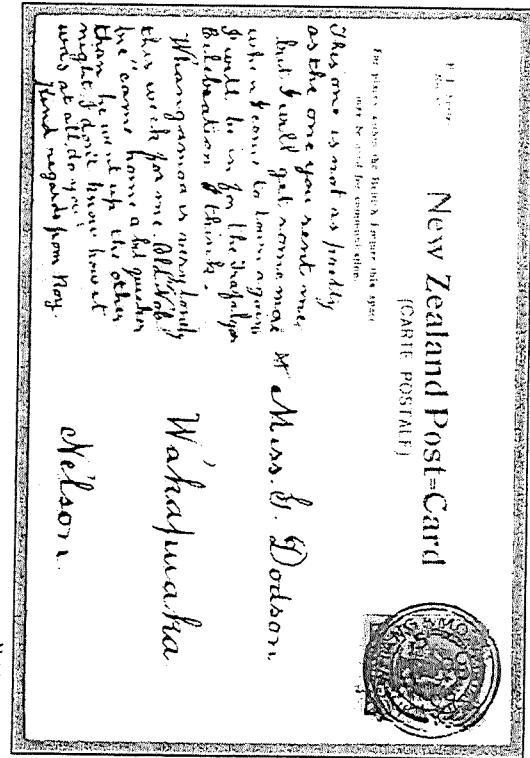 New Zealand Post=Card
(CARTE POSTALE)
For places within the British Empire this space
may be used for communication.
This one is not as pretty
as the one you sent me,
but I will get some more
when I come to town again
I will be in for the Trafalgar
Celebration I think.
Whangamoa is very lonely
this week for me. Old Nob
he "came home a bit quicker
than he went up the other
night I don't know how it
was at all, do you?
Kind regards from Roy.
Miss. G. Dodson
Wakapuaka
Nelson.
WHANGAMOA